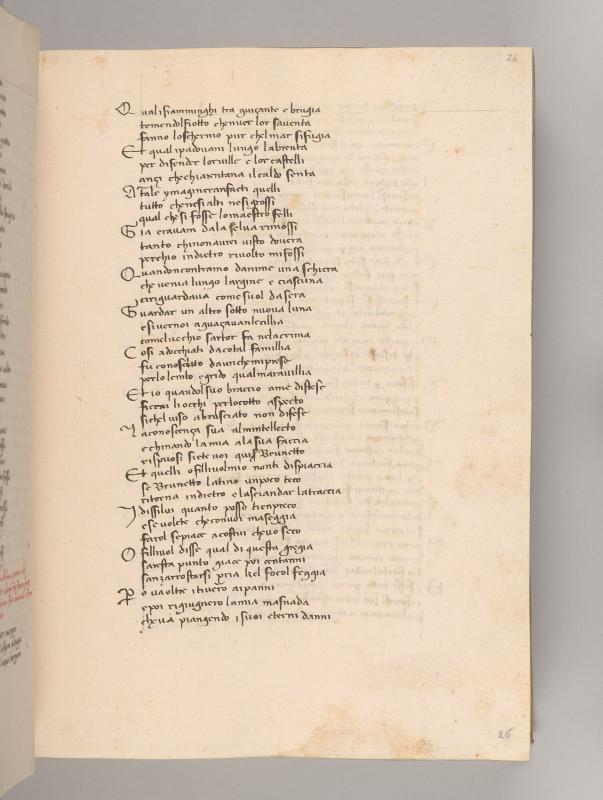 26
Q ualifiamminghi tra guiçante e brugia
temendolfiotto chenver lor saventa
fanno loschermo pur chelmar sifugia
Et qual ipadovani lungo labrenta
per difender lorville e lor castelli
ançi chechiarentana ilcaldo senta
A tale ymagineeranfacti quelli
tutto chenesialti nesigrossi
qual chesi fosse lomaestro felli
G ia eravam dala selva rimossi
tanto chinonavrei visto dovera
perchio indietro rivolto mifossi
Q uandoncontramo danime una schiera
che venia lungo largine e ciascuna
ciriguardava come suol dasera
G uardar un altro sotto nuova luna
esivernoi aguaçavanlecillia
comelvechio sartor fa nelacruna
C osi adocchiati dacotal famillia
fu conosciuto daunchemiprese
perlo lembo egrido qualmaravillia
Et io quandolsuo braccio ame distese
ficcai liocchi perlocotto aspecto
sichelviso abrusciato non difese
L aconoscença sua almintellecto
echinando lamia alasua faccia
rispuosi siete voi qui Brunetto
Et quelli ofillivolmio nonti dispiaccia
se Brunetto latino unpoco teco
ritorna indietro elasciandar latraccia
I dissilui quanto posso tenpreco
ese volete checonvoi maseggia
farol sepiace acostui chevo seco
O fillivol disse qual di questa greggia
saresta punto giace poi centanni
sanzarrostarsi
P o va oltre itivero aipanni
epoi rigiugnero lamia masnada
cheva piangendo isuoi eterni danni
26